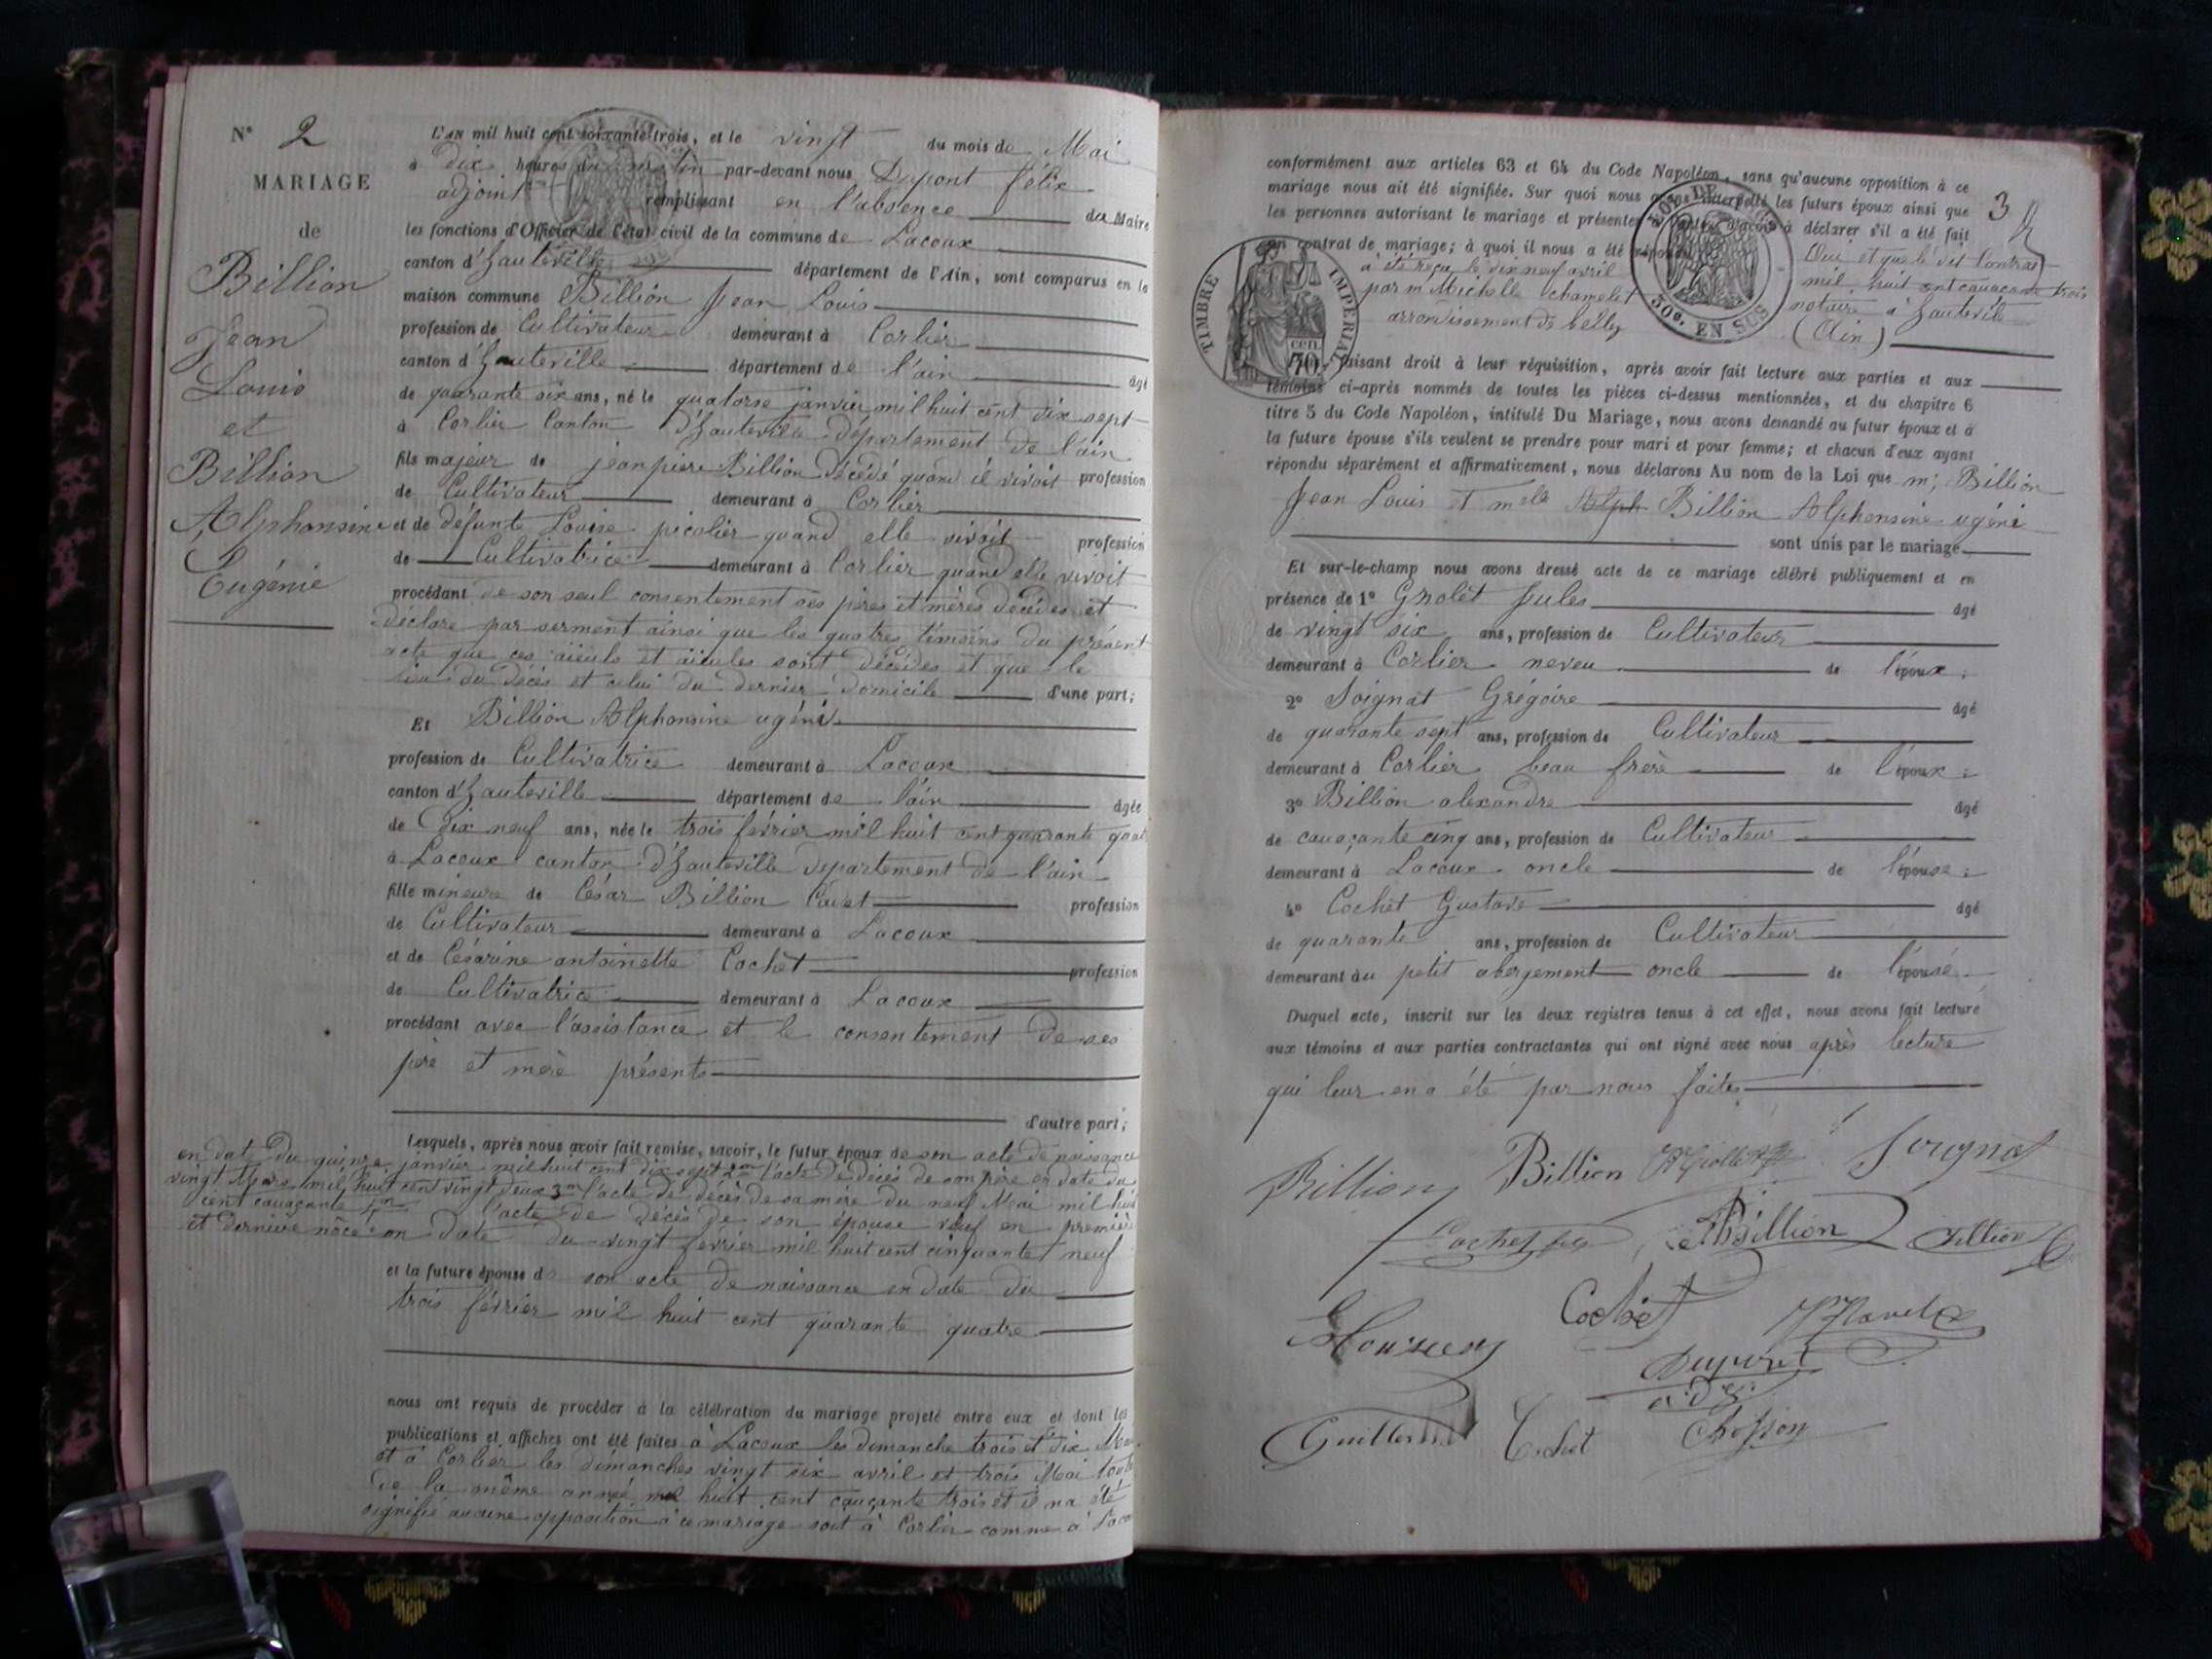 N° 2
MARIAGE
de
Billion
Jean
Louis
et
Billion
Alphonsine
Eugénie
L'AN mil huit cent soixante-trois, et le vingt du mois de Mai
à dix heures du matin par-devant nous Dupont félix
adjoint remplissant en l'absence du Maire
les fonctions d'Officier de l'état civil de la commune de Lacoux
canton d'hauteville département de l'Ain, sont comparus en la
maison commune Billion Jean Louis
profession de Cultivateur demeurant à Corlier
canton d'hauteville département de l'ain âgé
de quarante six ans, né le quatorse janvier mil huit cent dix sept
à Corlier Canton d'hauteville département de l'ain
fils majeur de jean piere Billion décédé quand il vivoit profession
de Cultivateur demeurant à Corlier
et de défunte Louise picolier quand elle vivoit profession
de Cultivatrice demeurant à Corlier quand elle vivoit
procédant de son seul consentement ses pères et mères décédés et
déclare par serment ainsi que les quatres témoins du présent
acte que ces aieuls et aieules sont décédés et que le
lieu du décès et celui du dernier domicile d'une part;
Et Billion Alphonsine ugénie
profession de Cultivatrice demeurant à Lacoux
canton d'hauteville département de l'ain âgée
de dix neuf ans, née le trois février mil huit cent quarante quat
à Lacoux canton d'hauteville departement de l'ain
fille mineure de César Billion Cavet profession
de Cultivateur demeurant à Lacoux
et de Césarine antoinette Cochet profession
de Cultivatrice demeurant à Lacoux
procédant avec l'assistance et le consentement de ses
père et mère présents
d'autre part;
Lesquels, après nous avoir fait remise, savoir, le futur époux de son acte de naissance
en date du quinze janvier mil huit cent dix sept 2m l'acte de décès de son père en date du
vingt Mars mil huit cent vingt deux 3m l'acte de décès de sa mère du neuf Mai mil huit
cent cauaçante 4m l'acte de décès de son épouse veuf en première
et dernière nôce en date du vingt février mil huit cent cinquante neuf
et la future épouse de son acte de naissance en date du
trois février mil huit cent quarante quatre
nous ont requis de procéder à la célébration du mariage projeté entre eux et dont les
publications et affiches ont été faites à Lacoux les dimanche trois et dix Mai
et à Corlier les dimanches vingt six avril et trois Mai tout
de la même année mil huit cent cauçante trois et il na été
signifié aucune opposition à ce mariage soit à Corlier comme à Laco
conformément aux articles 63 et 64 du Code Napoléon, sans qu'aucune opposition à ce
mariage nous ait été signifiée. Sur quoi nous avons interpellé les futurs époux ainsi que
3
les personnes autorisant le mariage et présentes à déclarer s'il a été fait
un contrat de mariage; à quoi il nous a été répondu Oui et que le dit Contrat
à été reçu le dix neuf avril mil huit cent cauaçante trois
par m Michelle chamelet notaire à hauteville
arrondissement de belley (Ain)
TIMBRE IMPERIAL
50 cen.
50c. EN SUS
faisant droit à leur réquisition, après avoir fait lecture aux parties et aux
témoins ci-après nommés de toutes les pièces ci-dessus mentionnées, et du chapitre 6
titre 5 du Code Napoléon, intitulé Du Mariage, nous avons demandé au futur époux et à
la future épouse s'ils veulent se prendre pour mari et pour femme; et chacun d'eux ayant
répondu séparément et affirmativement, nous déclarons Au nom de la Loi que m; Billion
Jean Louis et mele Alph Billion Alphonsine ugéni
sont unis par le mariage
Et sur-le-champ nous avons dressé acte de ce mariage célébré publiquement et en
présence de 1° Grolèt Jules âgé
de vingt six ans, profession de Cultivateur
demeurant à Corlier neveu de l'époux;
2° Soignat Grégoire âgé
de quarante sept ans, profession de Cultivateur
demeurant à Corlier beau frère de l'époux;
3° Billion alexandre âgé
de cauaçante cinq ans, profession de Cultivateur
demeurant à Lacoux oncle de l'épouse;
4° Cochet Gustave âgé
de quarante ans, profession de Cultivateur
demeurant au petit abergement oncle de l'épouse
Duquel acte, inscrit sur les deux registres tenus à cet effet, nous avons fait lecture
aux témoins et aux parties contractantes qui ont signé avec nous après lecture
qui leur en a été par nous faites
Billion Billion Grollet Soignat
Cochet Billion Billion
Cochet
Dupont
adj
Guillermet Cochet Chosson